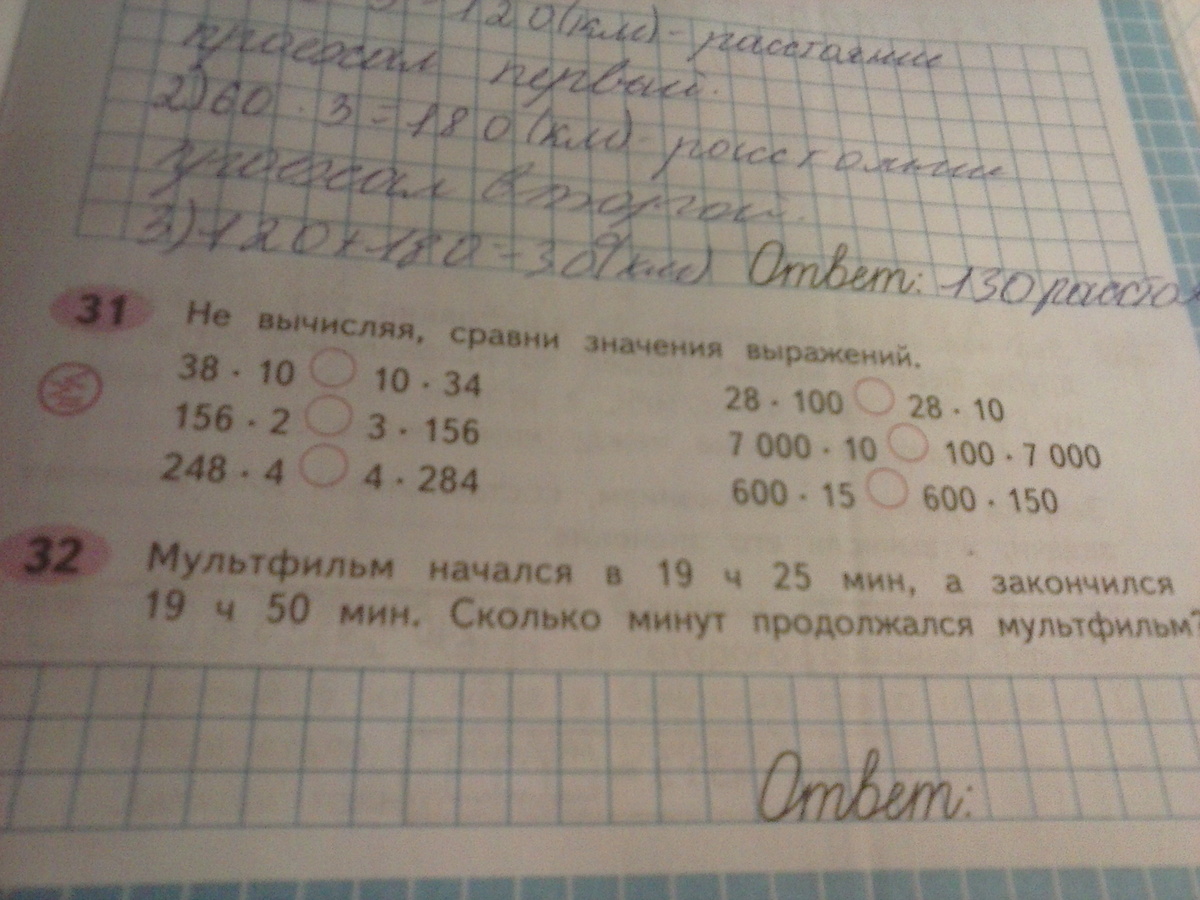 120(км) - расстояние
проехал первый.
2) 60 · 3 = 180(км) - расстояние
проехал второй.
3) 120 + 180 = 300(км) Ответ: 130 расстоя
31 Не вычисляя, сравни значения выражений.
38 · 10 10 · 34
156 · 2 3 · 156
248 · 4 4 · 284
28 · 100 28 · 10
7 000 · 10 100 · 7 000
600 · 15 600 · 150
32 Мультфильм начался в 19 ч 25 мин, а закончился
19 ч 50 мин. Сколько минут продолжался мультфильм?
Ответ: